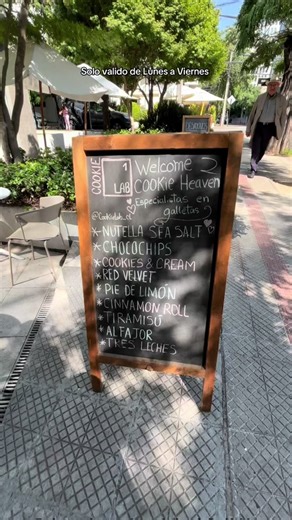 Solo valido de Lunes a Viernes
COOKIE
1
LAB
Welcome 2
COOKIE Heaven
Especialistas en
galletas
* NUTELLA SEA SALT
* CHOCOCHIPS
* COOKIES & CREAM
* RED VELVET
* PIE DE LIMÓN
* CINNAMON ROLL
* TIRAMISÚ
* ALFAJOR
* TRES LECHES